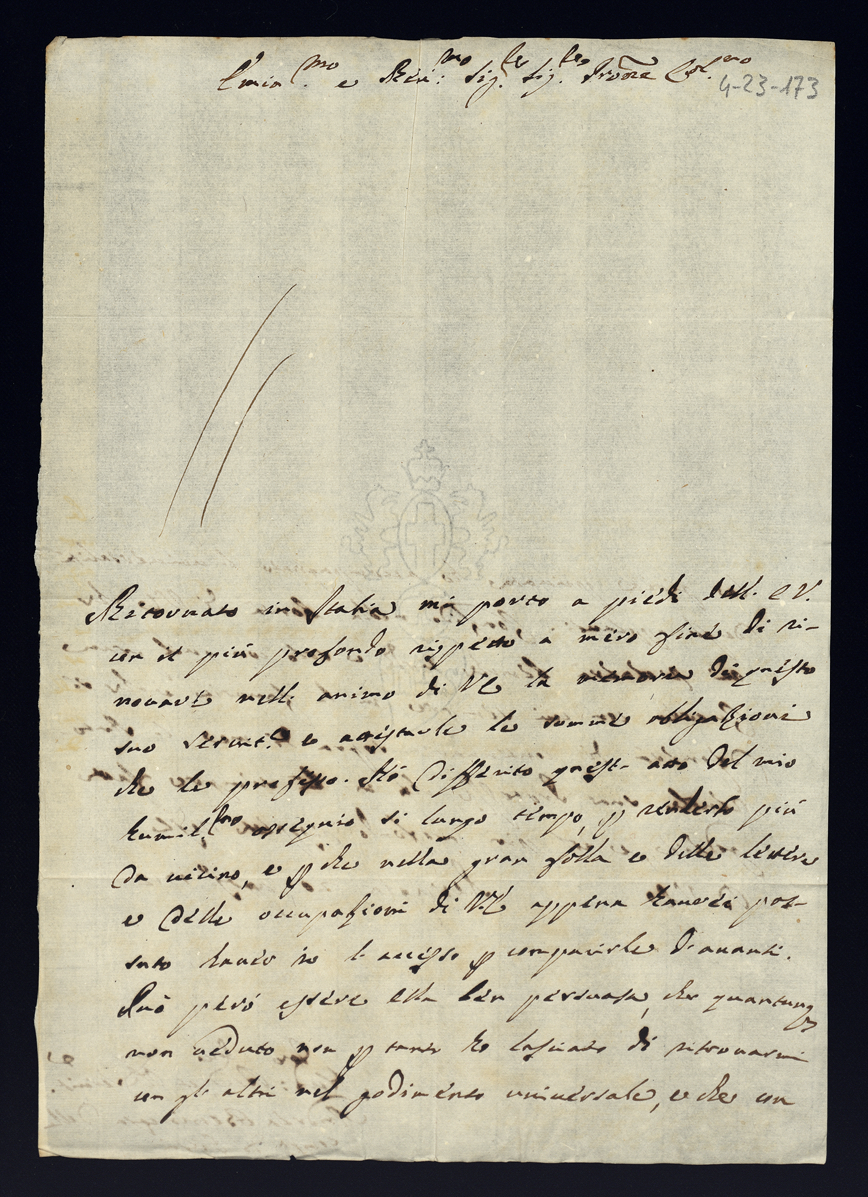 Emin.mo e Rev.mo Sig.re Sig.re Prone Col.mo
4-23-173
Ritornato in Italia mi porto a piedi dell. E V.
con il più profondo rispetto a mero fine di ri-
novare nell. animo di VE la memoria di questo
suo servit.e e attestarle le somme obligazioni
che le professo. Hò differito quest. atto del mio
humil.mo ossequio sì lungo tempo, p renderlo più
da vicino, e p che nella gran folla e delle lettere
e delle occupazioni di VE appena haverei pos-
suto haver io l. accesso p comparirle d'avanti.
Può però essere ella ben persuasa, che quantunq
non veduto non p tanto ho lasciato di ritrovarmi
con gl. altri nel godimento universale, e che con